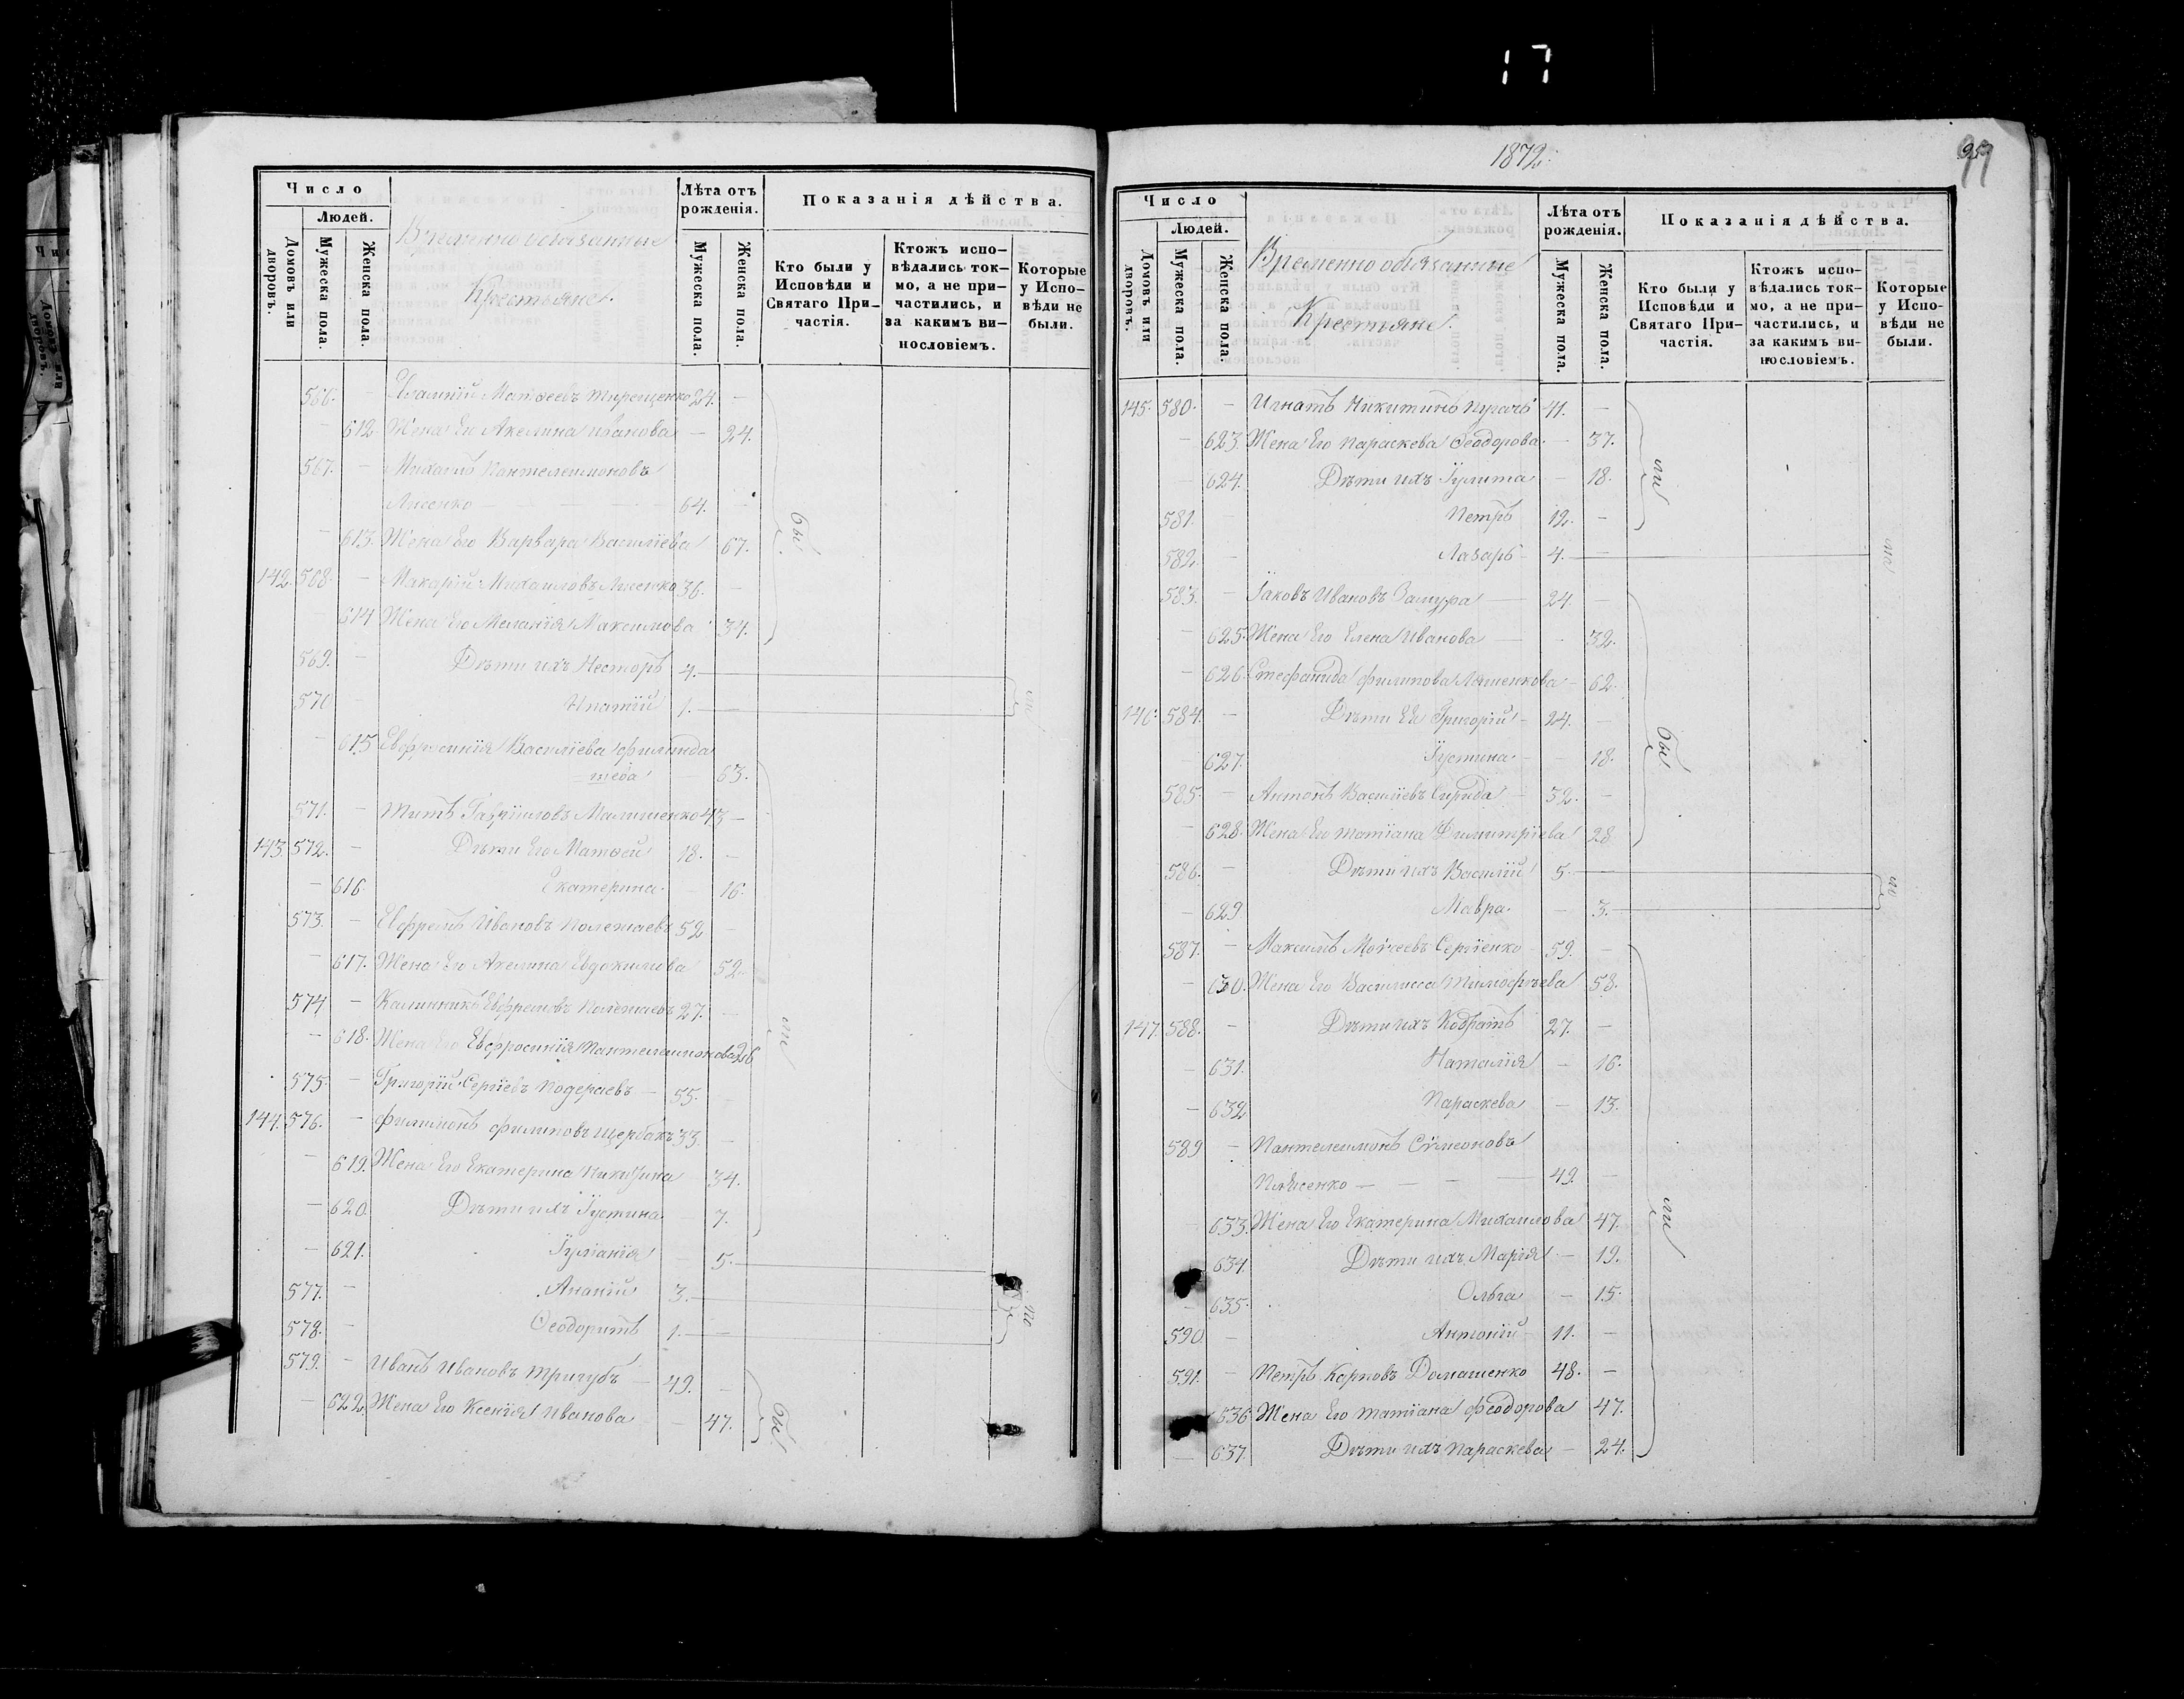 17
Число
Людей.
Домовъ или дворовъ.
Мужеска пола.
Женска пола.
Временно обязанные
Крестьяне.
Лѣта отъ рожденія.
Мужеска пола.
Женска пола.
Показанія дѣйства.
Кто были у Исповѣди и Святаго Причастія.
Ктожъ исповѣдались токмо, а не причастились, и за какимъ винословіемъ.
Которые у Исповѣди не были.
566. Матѳеевъ Терещенко 24. -
- 612 Жена Его Акелина Иванова - 24.
567. - Михаилъ Пантелеимоновъ
Лисенко - 64. -
- 613. Жена Его Варвара Василіева 67.
142. 568. - Макарій Михаиловъ Лисенко 36. -
614 Жена Его Меланія Максимова 34.
569. - Дѣти ихъ Несторъ 4.
570 - Ипатій 1. -
- 615 Евфросинія Василіева
63.
571. - Титъ Гавріиловъ Малишенко 43 -
143. 572. - Дѣти Его Матѳей 18. -
- 616. Екатерина 16.
573. - Евфремъ Ивановъ Полетаевъ 52 -
- 617. Жена Его Акелина Евдокимова 52.
574 - Калинникъ Евфремовъ Полетаевъ 27. -
- 618. Жена Его Евфросинія Пантелеимонова 26
575. - Григорій Сергіевъ Подераевъ - 55.
144. 576. - Филимонъ Филиповъ Щербакъ 33. -
- 619. Жена Его Екатерина Никитина 34.
- 620. Дѣти ихъ Іустина 7.
- 621. Іуліанія - 5.
577. - Ананій 3. -
578. - Ѳеодоритъ 1. -
579. - Иванъ Ивановъ Тригубъ - 49. -
- 622. Жена Его Ксенія Иванова - 47.
бы
ли
бы
не
не
1872.
99
Число
Людей.
Домовъ или дворовъ.
Мужеска пола.
Женска пола.
Временно обязанные
Крестьяне.
Лѣта отъ рожденія.
Мужеска пола.
Женска пола.
Показанія дѣйства.
Кто были у Исповѣди и Святаго Причастія.
Ктожъ исповѣдались токмо, а не причастились, и за какимъ винословіемъ.
Которые у Исповѣди не были.
145. 580. - Игнатъ Никитинъ Пугачъ 41. -
- 623. Жена Его Параскева Ѳеодорова - 37.
- 624. Дѣти ихъ Іулита - 18.
581. - Петръ 12. -
582. - Лазарь 4. -
583. - Іаковъ Ивановъ 24. -
- 625. Жена Его Елена Иванова - 32.
- 626. Стефанида Филипова Ляшенкова - 62.
146. 584. - Дѣти Ея Григорій 24. -
- 627. Іустина - 18.
585. - Антонъ Василіевъ Сирида 32. -
- 628. Жена Его Татіана Димитріева 28
586. - Дѣти ихъ Василій 5. -
- 629. Мавра - 3.
587. - Максимъ Моѵсеевъ Сергіенко 59. -
- 630. Жена Его Василисса Тимофѣева 58.
147. 588. - Дѣти ихъ Кодратъ 27. -
- 631. Наталія - 16.
- 632. Параскева - 13.
589 - Пантелеимонъ Сѵмеоновъ
49. -
633. Жена Его Екатерина Михаилова 47.
634. Дѣти ихъ Марія - 19.
- 635. Ольга - 15.
590. - Антоній 11. -
591. - Петръ Карповъ Домашенко 48. -
636 Жена Его Татіана Феодорова 47.
- 637. Дѣти ихъ Параскева - 24.
ли
бы
ли
не
не